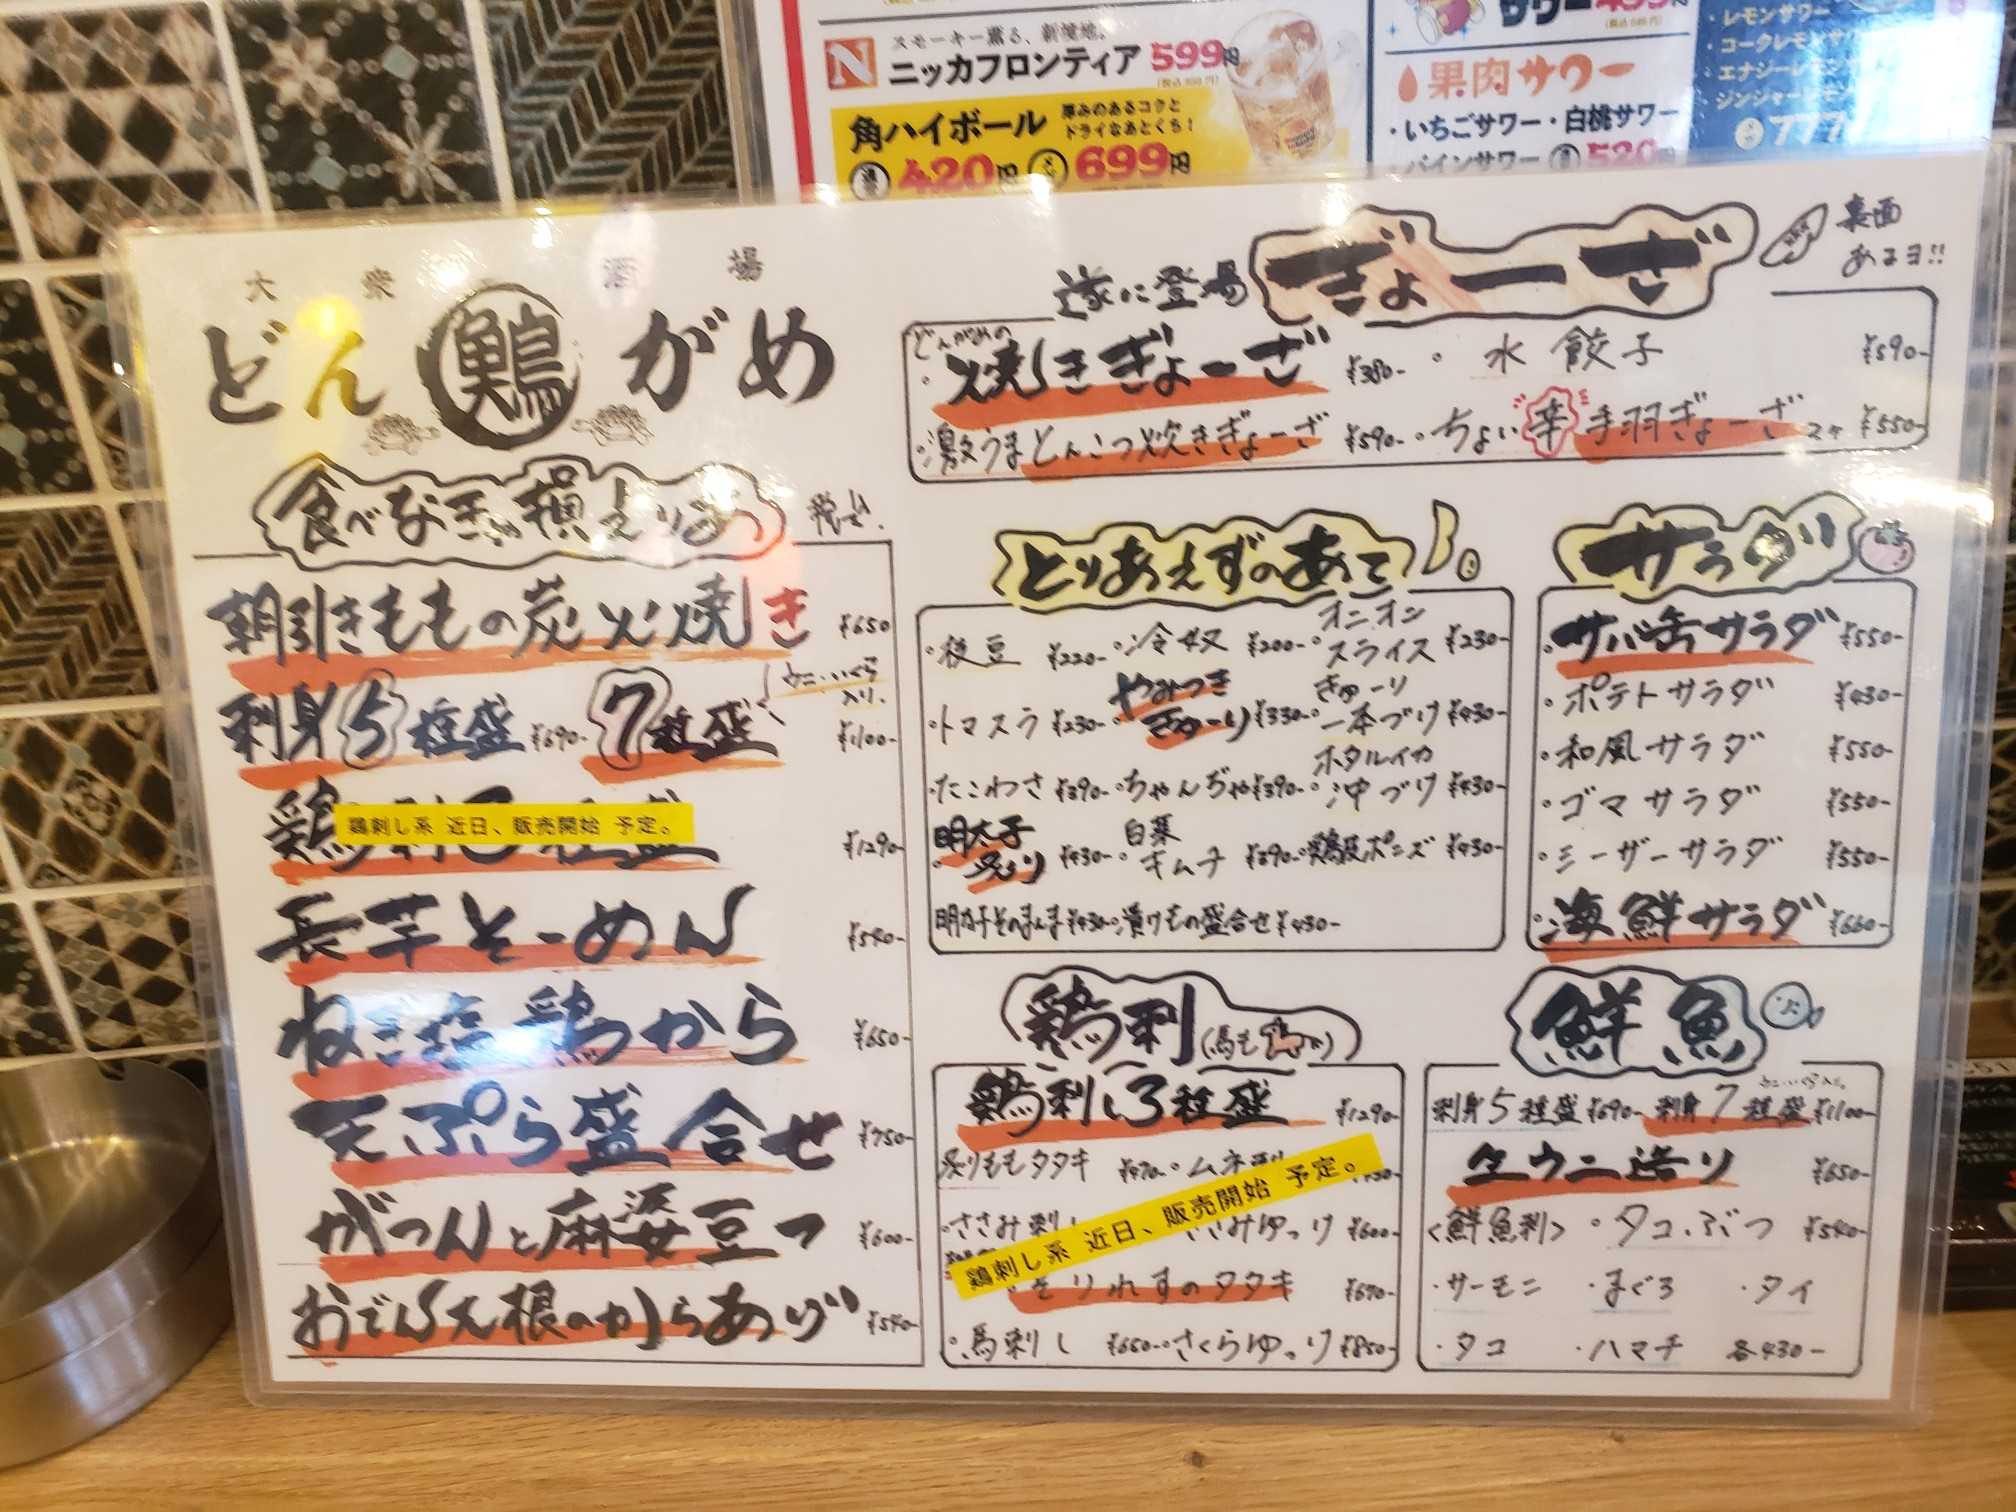 スモーキー薫る、新境地。
ニッカフロンティア 599円
角ハイボール
厚みのあるコクと
ドライなあとくち!
420円 699円
サワー
果肉サワー
・いちごサワー・白桃サワー
パインサワー 520円
・レモンサワー
・コークレモンサワー
・エナジーレモン
ジンジャーレモン
777
大衆酒場
どん 鶏 がめ
食べなきゃ損えりあっ 税込.
朝引きももの炭火焼き ¥650
刺身5種盛 ¥690- 7種盛 ウニ・いくら入り. ¥1100-
鶏刺し3種盛 ¥1290-
鶏刺し系 近日、販売開始 予定。
長芋そーめん ¥540-
ねぎ塩鶏から ¥650-
天ぷら盛合せ ¥750-
がつんと麻婆豆フ ¥600-
おでん大根のからあげ ¥540-
遂に登場 ぎょーざ
裏面
あるヨ!!
どんがめの
・焼きぎょーざ ¥380- ・水餃子 ¥590-
・激うまとんこつ炊きぎょーざ ¥590- ・ちょい辛手羽ぎょーざ 2ヶ ¥550-
とりあえずのあて
・枝豆 ¥220- ・冷奴 ¥200- ・オニオンスライス ¥230-
・トマスラ ¥230- ・やみつききゅーり ¥330- ・きゅーり一本づけ ¥430-
・たこわさ ¥390- ・ちゃんぢゃ ¥390- ・ホタルイカ沖づけ ¥430-
・明太子炙り ¥430- ・白菜キムチ ¥390- ・鶏皮ポンズ ¥430-
明太子そのまんま ¥430- ・漬けもの盛合せ ¥430-
サラダ
・サバ缶サラダ ¥550-
・ポテトサラダ ¥430-
・和風サラダ ¥550-
・ゴマサラダ ¥550-
・シーザーサラダ ¥550-
・海鮮サラダ ¥660-
鶏刺 (馬も)
鶏刺し3種盛 ¥1290-
炙りももタタキ ¥470- ・ムネ刺
・ささみ刺し ささみゆっけ ¥600-
鶏刺し系 近日、販売開始 予定。
そりれすのタタキ ¥670-
・馬刺し ¥650- ・さくらゆっけ ¥850-
鮮魚
刺身5種盛 ¥690- 刺身7種盛 ¥1100-
生ウニ造り ¥650-
<鮮魚刺> ・タコぶつ ¥540-
・サーモン ・まぐろ ・タイ
・タコ ・ハマチ 各430-